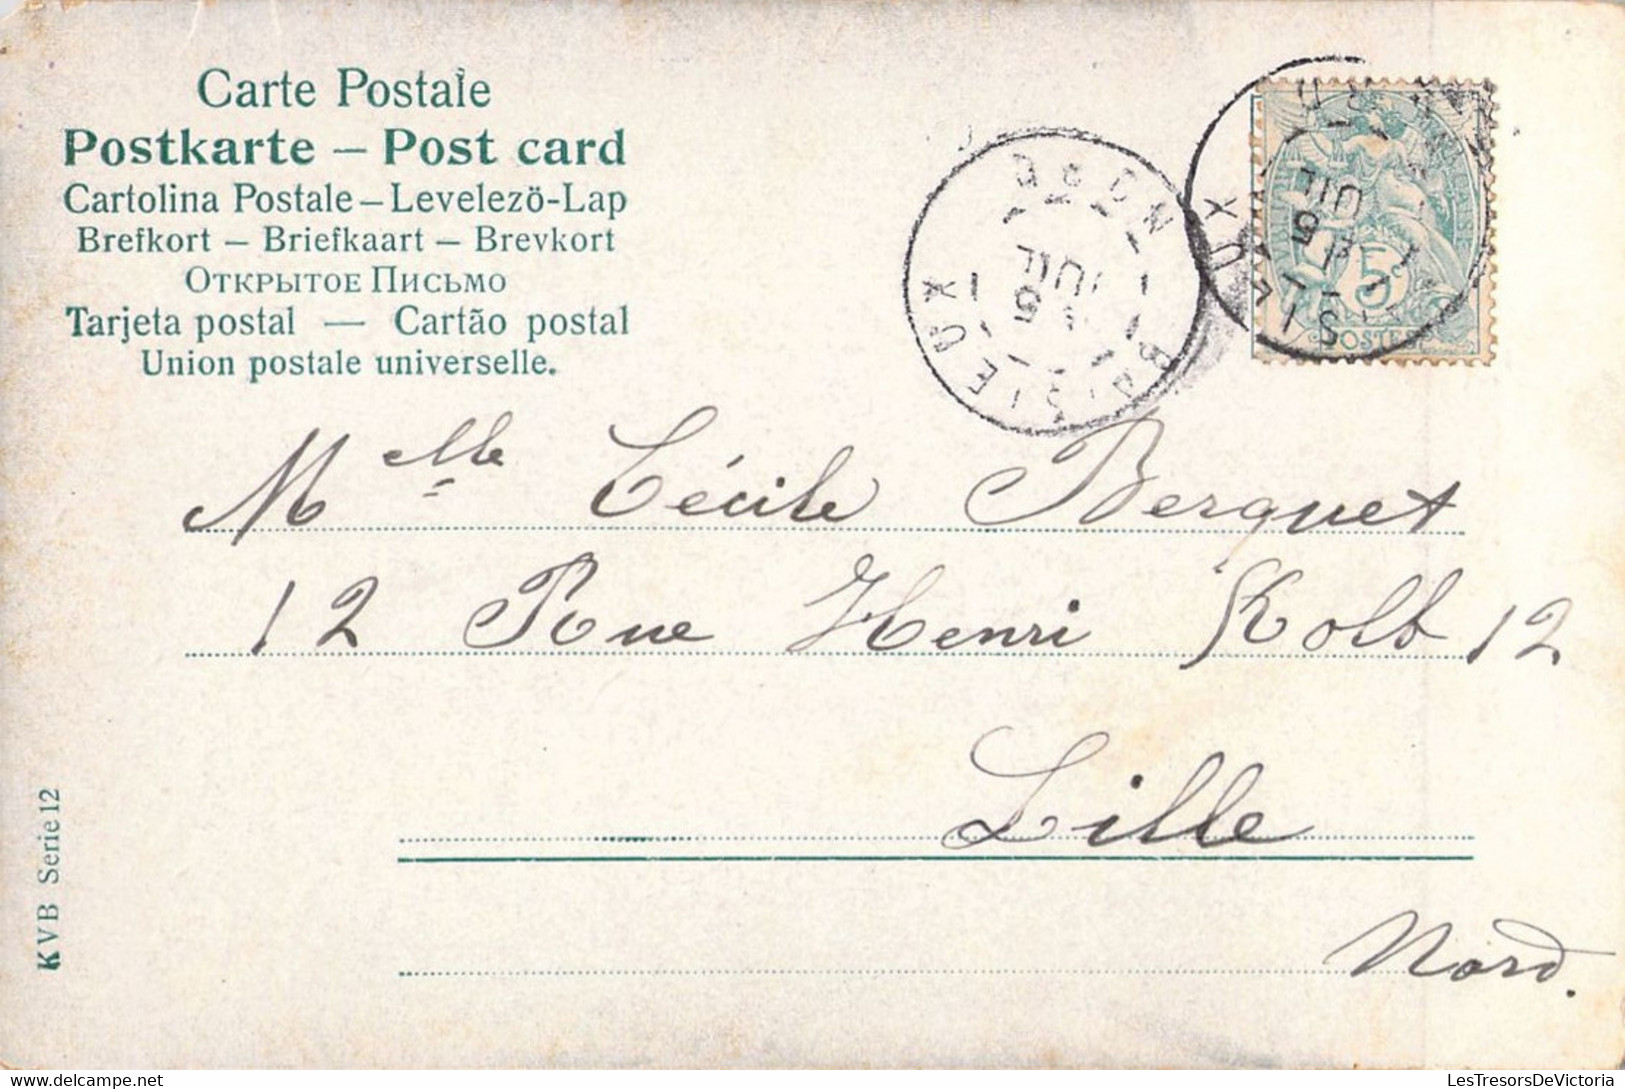 Carte Postale
Postkarte – Post card
Cartolina Postale – Levelezö-Lap
Brefkort – Briefkaart – Brevkort
Открытое Письмо
Tarjeta postal — Cartão postal
Union postale universelle.
5c
POSTES
JUIL
5
JUIL
5
Melle Cécile Berquet
12 Rue Henri Kolb 12
Lille
Nord.
KVB Serie 12
LesTresorsDeVictoria
delcampe.net